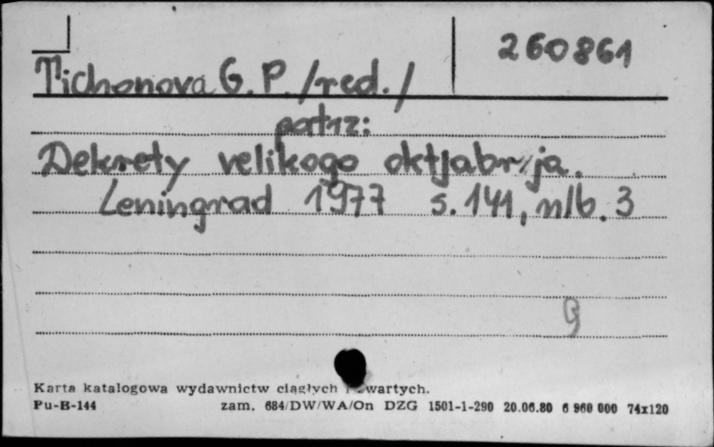 260861
Tichonova G. P. /red./
patrz:
Dekrety velikogo oktjabrja.
Leningrad 1977 s. 141, nlb. 3
9
Karta katalogowa wydawnictw ciągłych i zwartych.
Pu-B-144 zam. 684/DW/WA/On DZG 1501-1-290 20.06.80 6 960 000 74x120